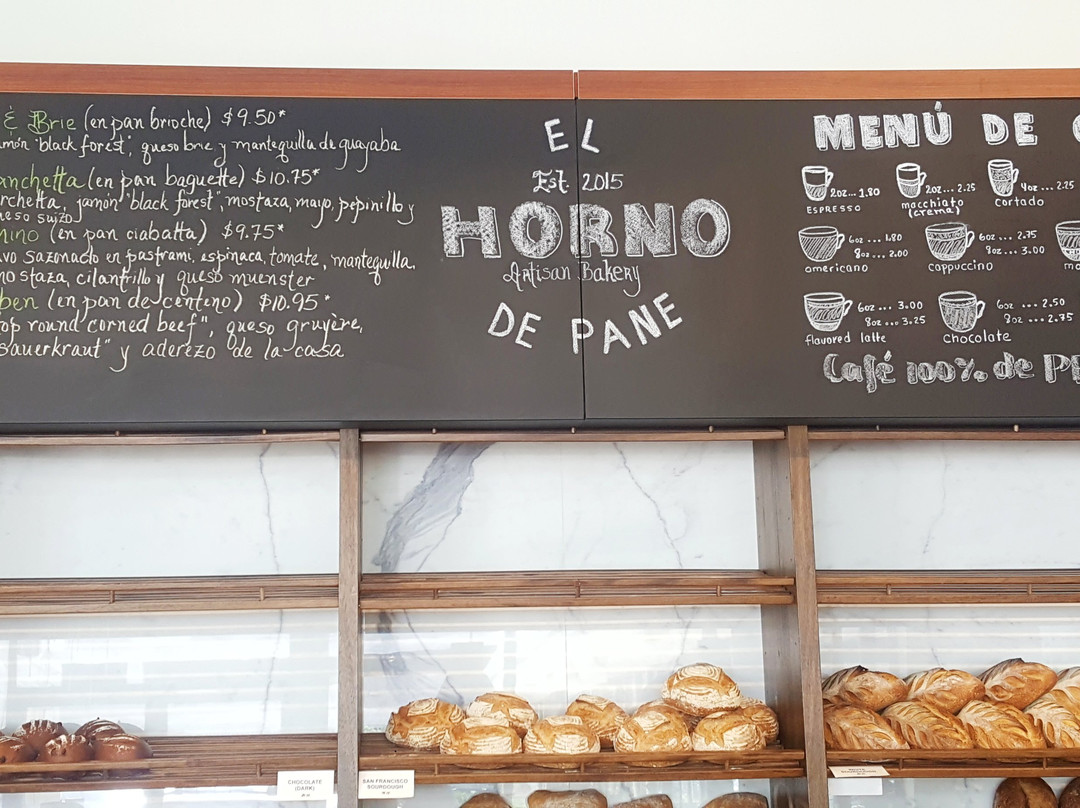 & Brie (en pan brioche) $9.50*
amón "black forest", queso brie y mantequilla de guayaba
anchetta (en pan baguette) $10.75*
rchetta, jamón "black forest", mostaza, mayo, pepinillo y
ueso suizo
nino (en pan ciabatta) $9.75*
vo sazonado en pastrami, espinaca, tomate, mantequilla,
mostaza, cilantrillo y queso muenster
ben (en pan de centeno) $10.95*
op round corned beef", queso gruyère,
sauerkraut" y aderezo de la casa
EL
Est. 2015
HORNO
Artisan Bakery
DE PANE
MENÚ DE C
2oz... 1.80
ESPRESSO
2oz... 2.25
macchiato
(crema)
4oz... 2.25
cortado
6oz ... 1.80
8oz ... 2.00
americano
6oz ... 2.75
8oz ... 3.00
cappuccino
ma
6oz ... 3.00
8oz ... 3.25
flavored latte
6oz ... 2.50
8oz ... 2.75
Chocolate
Café 100% de PR
CHOCOLATE
(DARK)
SAN FRANCISCO
SOURDOUGH